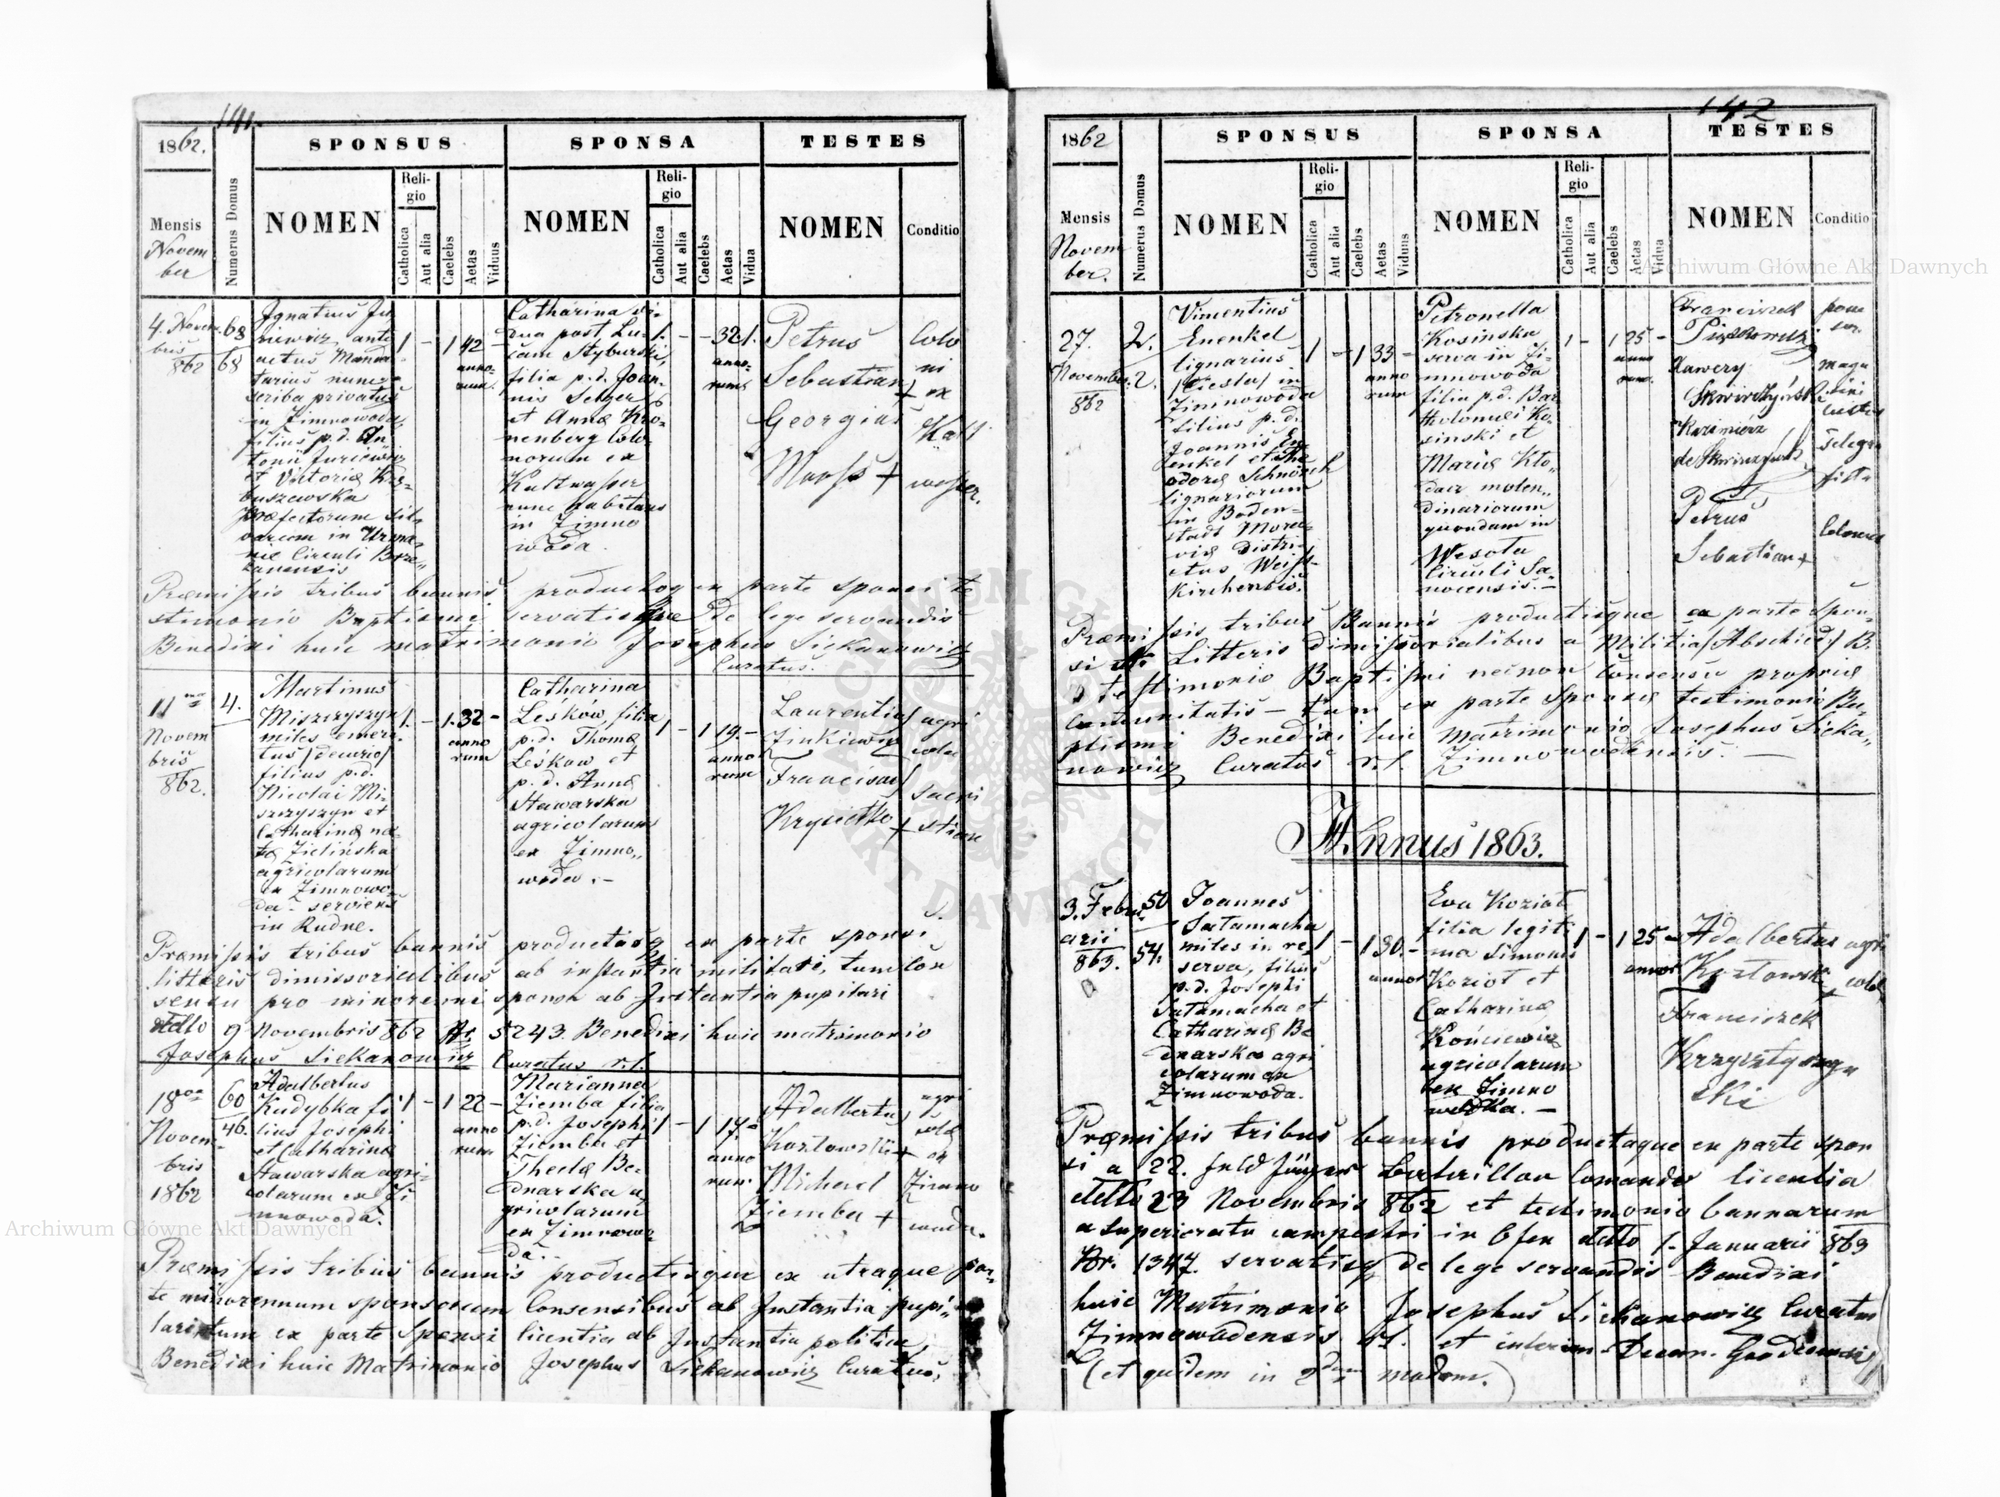 141.
1862.
SPONSUS
SPONSA
TESTES
Mensis
Novem
ber
Numerus Domus
NOMEN
Religio
Catholica
Aut alia
Caelebs
Aetas
Viduus
NOMEN
Religio
Catholica
Aut alia
Caelebs
Aetas
Vidua
NOMEN
Conditio
4. Novem
bris
862
68
68
Ignatius Ju
riewicz ante
actus Manda
tarius nunc
scriba privatus
in Zimnowoda
filius p.d. An
tonii Juriewicz
et Victoria
buszewska
Praefectorum sil
varum in
nie Circuli Brze
zanensis
1 - 1 42 -
anno
rum
Catharina vi
dua post Lu
cam Styburski,
filia p.d. Joan
nis Selger
et Anna Kro
nenberg Colo
norum ex
Kaltwasser
nunc habitans
in Zimno
woda.
1. - - 32 1.
anno
rum
Petrus
Sebastian +
Georgius
Moofs +
Colo
ni
ex
Kalt
wasser.
Praemissis tribus bannis productoq ex parte sponsi te
stimonio Baptismi servatisque De lege servandis
Benedixi huic matrimonio Josephus Siekanowicz
Curatus.
11
Novem
bris
862.
4.
Martinus
Miszczyszyn
miles emeri
tus
filius p.d.
Nicolai Mi
szczyszyn et
Catharina na
ta Zielińska
agricolarum
ex Zimnowo
da serviens
in Rudne.
1. - 1. 32 -
anno
rum
Catharina
Leśków filia
p.d. Thoma
Leśkow et
p.d. Anna
Stawarska
agricolarum
ex Zimno„
woda. -
1 - 1 19. -
anno
rum
Laurentius
Zinkiewicz
Franciscus
Krysietko +
agri
cola
sacri
stian
Praemissis tribus bannis productisq ex parte sponsi
litteris dimissorialibus ab instantia militari, tum Con
sensu pro minorenni sponsa ab Instantia pupilari
ddto 9 Novembris 862 Nr 5243. Benedixi huic matrimonio
Josephus Siekanowicz Curatus r.l.
18
Novem
bris
1862
60
46.
Adalbertus
Kudybka fi
lius Josephi
et Catharina
Stawarska agri
colarum ex Zi
mnowoda.
1 - 1 22 -
anno
rum
Marianna
Ziemba filia
p.d. Josephi
Ziemba et
Thecla Be
dnarska a
gricolarum
ex Zimnowo
da.
1 - 1 17 -
anno
rum
Adalbertus
Kozłowski +
Michael
Ziemba +
agri
cola
ex
Zimno
woda.
Praemissis tribus bannis productisque ex utraque par
te minorennum sponsorum Consensibus ab Instantia pupi
lari tum ex parte Sponsi licentia ab Instantia politica,
Benedixi huic Matrimonio Josephus Siekanowicz Curatus,
142
1862
SPONSUS
SPONSA
TESTES
Mensis
Novem
ber.
Numerus Domus
NOMEN
Religio
Catholica
Aut alia
Caelebs
Aetas
Viduus
NOMEN
Religio
Catholica
Aut alia
Caelebs
Aetas
Vidua
NOMEN
Conditio
27.
Novembr.
862
2.
2.
Vincentius
Enenkel
lignarius
/ciesla/ in
Zimnowoda
filius p.d.
Joannis En
enkel et The
odora
lignariorum
in Boden
stadt Mora
via Distri
ctus Weiss
kirchensis.
1 - 1 33 -
anno
rum
Petronella
Kosinska
serva in Zi
mnowoda
filia p.d. Bar
tholomei Ko
sinski et
Maria Kło
dacz molen„
dinariorum
quondam in
Wesoła
Circuli Sa
nocensis. -
1 - 1 25 -
anno
rum.
Franciszek
Xawery
Skwirczyński
Kazimierz
de Skwirczyński
Petrus
Sebastian +
maga
zini
custos
telegra
fista
Colonus
Praemissis tribus Bannis productisque ex parte Spon
si Litteris dimissorialibus a Militia /Abschied/ B.
testimonio Baptismi necnon Consensu propria
Comunitatis - tum ex parte Sponsa testimonio Ba„
ptismi Benedixi huic Matrimonio Josephus Sieka„
nowicz Curatus r.l. Zimnowodensis. -
Annus 1863.
3. Febru
arii
863.
50
54.
Joannes
Sałamacha
miles in re
serva, filius
p.d. Josephi
Sałamacha et
Catharina Be
dnarska agri
colarum ex
Zimnowoda.
1 - 1 30. -
annor
Eva Kozioł
filia legiti
ma Simonis
Kozioł et
Catharina
Końciewicz
agricolarum
ex Zimno
wodka. -
1 - 1 25 -
annor
Adalbertus
Kozłowski +
Franciszek
Krzysztynyn
ski
agri
cola
Praemissis tribus bannis productaque ex parte spon
si a 22. Feld Jäger Batailon Comando licentia
ddto 23 Novembris 862 et testimonio bannarum
a Superioratu campestri in Ofen ddto 1. Januarii 863
Nr. 1347. servatisq de lege servandis Benedixi
huic Matrimonio Josephus Siekanowicz Curatus
Zimnowodensis r.l. et interim Decan. Grodecensis
(et quidem in 2do madom.)
Archiwum Główne Akt Dawnych
Archiwum Główne Akt Dawnych
ARCHIWUM GŁÓWNE AKT DAWNYCH